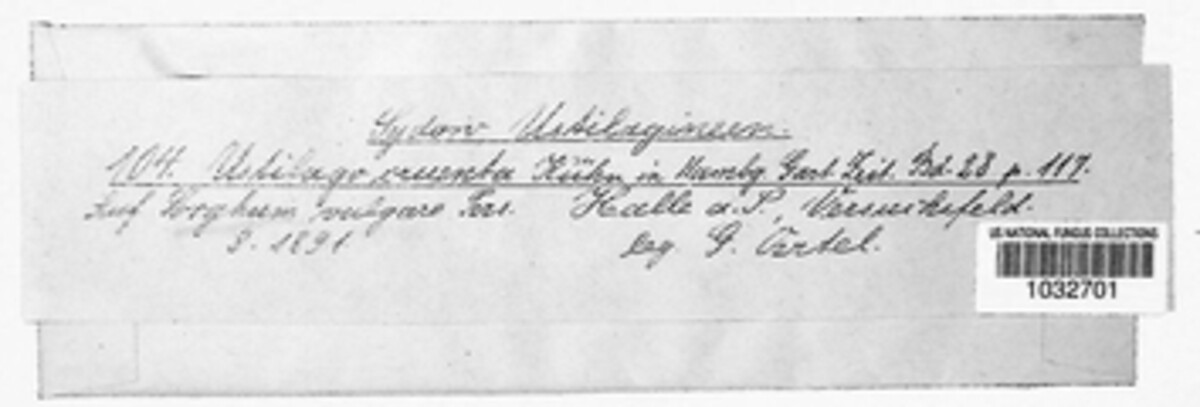 Sydow, Ustilagineen.
104. Ustilago cruenta Kühn in Hambg. Gart. Zeit. Bd. 28 p. 117.
Auf Sorghum vulgare Pers. Halle a. S., Versuchsfeld.
9. 1891 leg. G. Oertel.
US NATIONAL FUNGUS COLLECTIONS
1032701